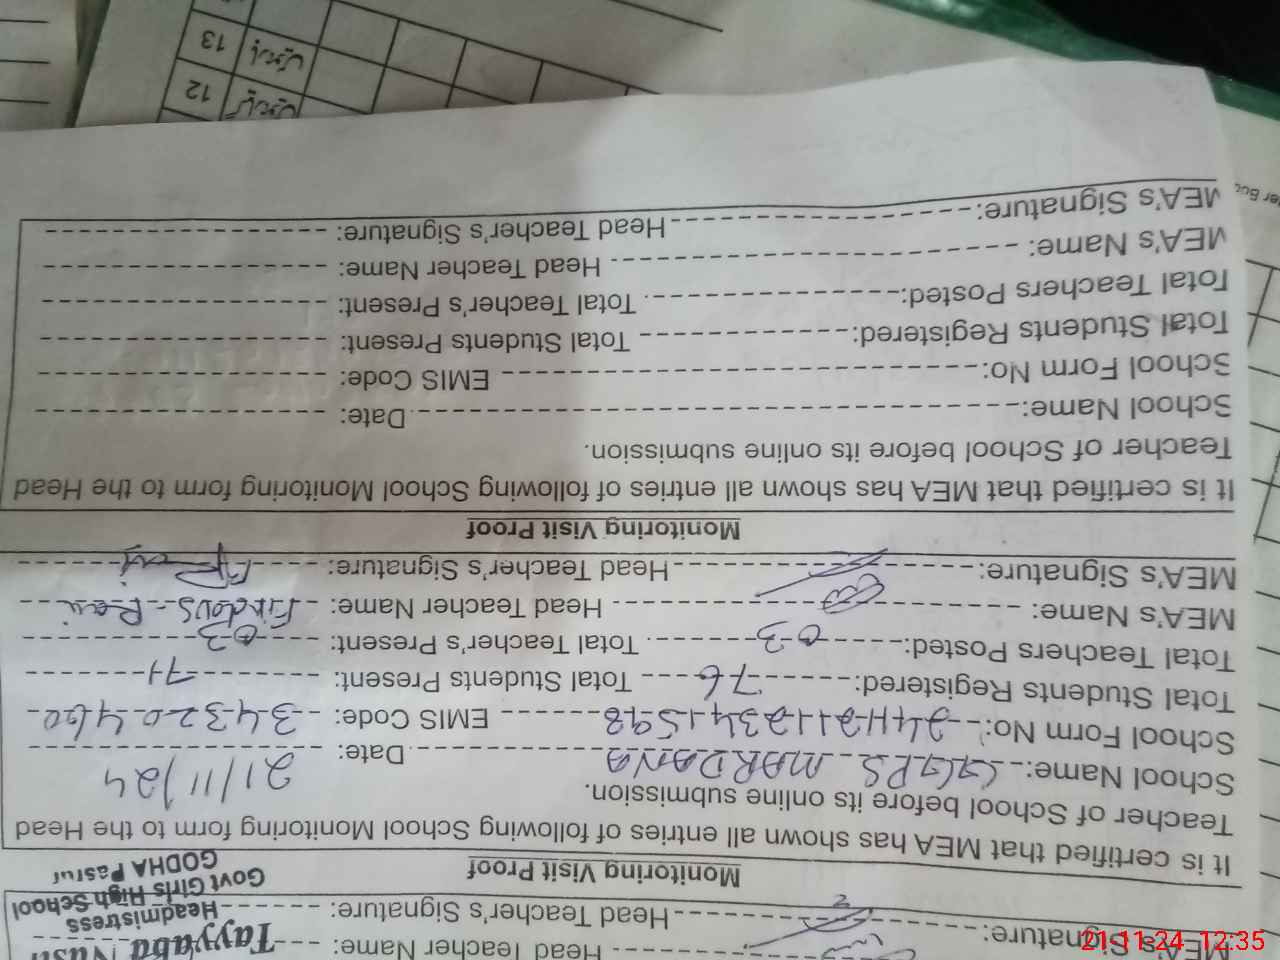 Head Teacher Name: Tayyaba
MEA's Signature: Head Teacher's Signature: Headmistress
Govt Girls High School
GODHA Pasrur
Monitoring Visit Proof
It is certified that MEA has shown all entries of following of School Monitoring form to the Head
Teacher of School before its online submission.
School Name: GGPS MARDANA Date: 21/11/24
School Form No: EMIS Code: 34320460
Total Students Registered: 76 Total Students Present: 71
Total Teachers Posted: 03 Total Teacher's Present: 03
MEA's Name: Head Teacher Name: Firdous
MEA's Signature: Head Teacher's Signature:
Monitoring Visit Proof
It is certified that MEA has shown all entries of following of School Monitoring form to the Head
Teacher of School before its online submission.
School Name: Date:
School Form No: EMIS Code:
Total Students Registered: Total Students Present:
Total Teachers Posted: Total Teacher's Present:
MEA's Name: Head Teacher Name:
MEA's Signature: Head Teacher's Signature:
12
13
21-11-24 12:35